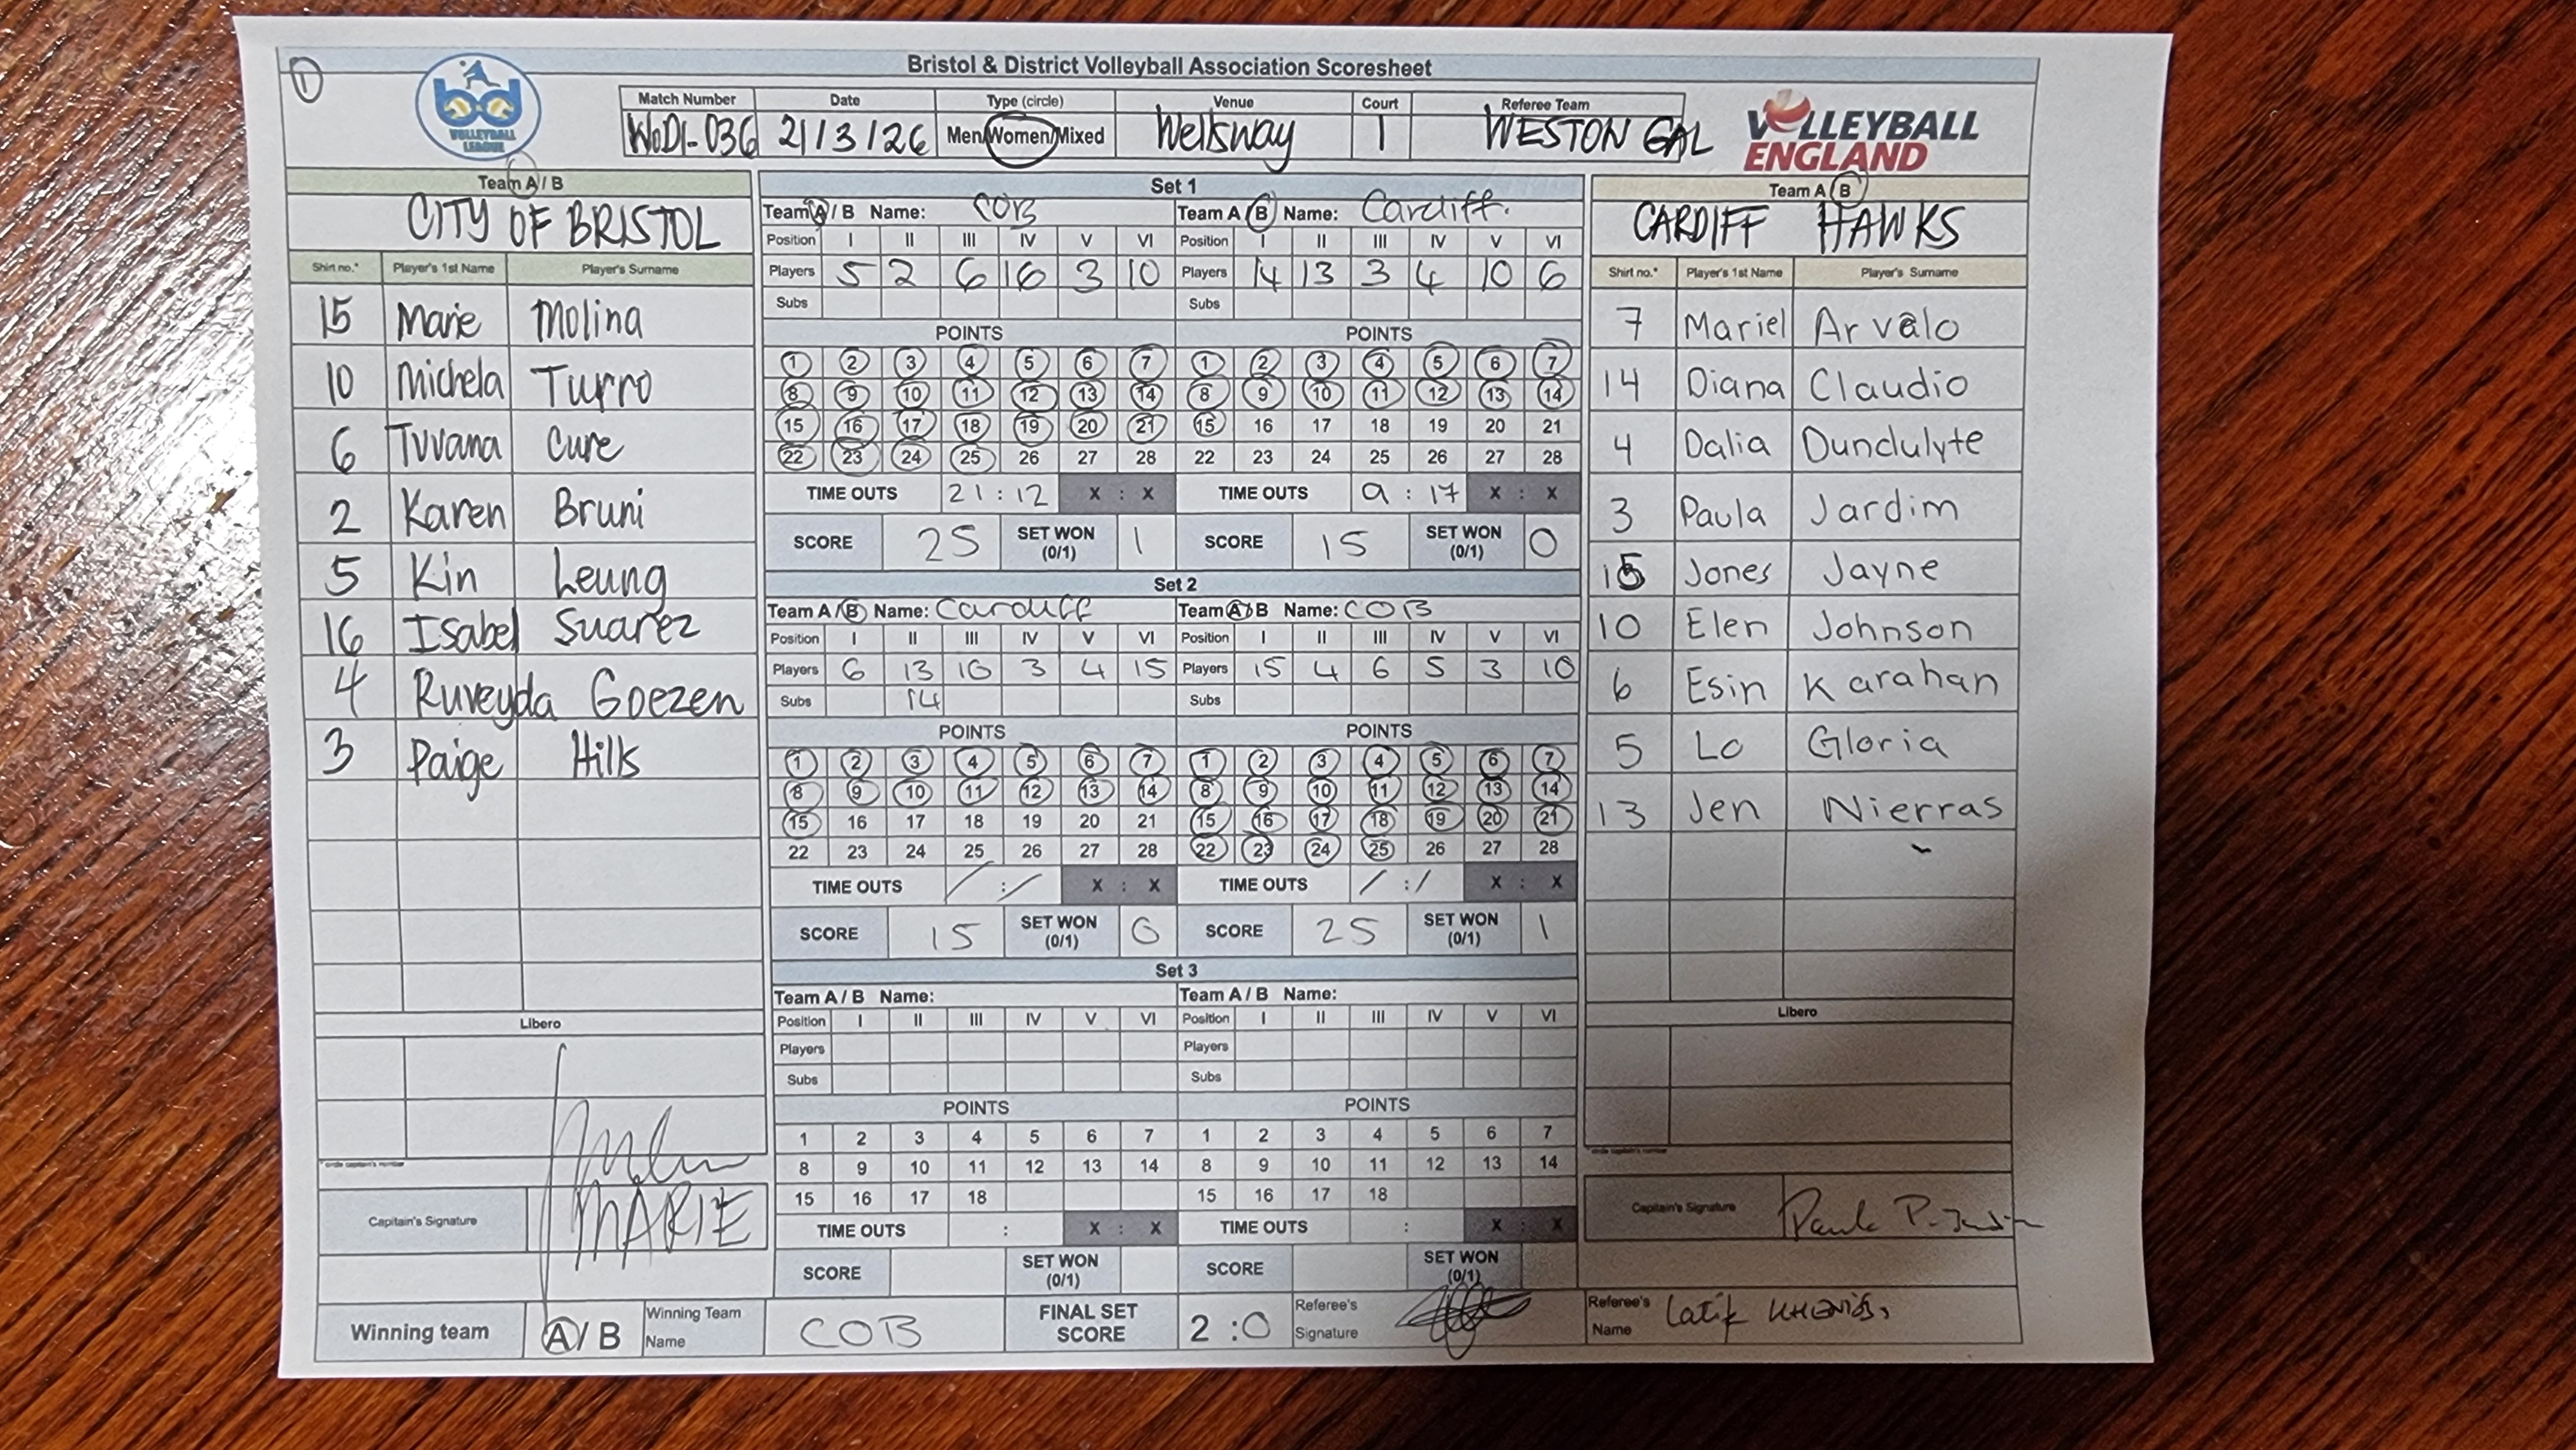 ①
Bristol & District Volleyball Association Scoresheet
bd VOLLEYBALL LEAGUE
Match Number Date Type (circle) Venue Court Referee Team
WoD1-036 21/3/26 Men/Women/Mixed Wellsway 1 WESTON GAL
VOLLEYBALL ENGLAND
Team A / B
CITY OF BRISTOL
Shirt no.* Player's 1st Name Player's Surname
15 Marie Molina
10 Michela Turro
6 Tuvana Cure
2 Karen Bruni
5 Kin Leung
16 Isabel Suarez
4 Ruveyda Goezen
3 Paige Hills
Libero
* circle captain's number
Captain's Signature MARIE
Set 1
Team A / B Name: COB Team A / B Name: Cardiff.
Position I II III IV V VI Position I II III IV V VI
Players 5 2 6 16 3 10 Players 14 13 3 4 10 6
Subs Subs
POINTS POINTS
1 2 3 4 5 6 7 1 2 3 4 5 6 7
8 9 10 11 12 13 14 8 9 10 11 12 13 14
15 16 17 18 19 20 21 15 16 17 18 19 20 21
22 23 24 25 26 27 28 22 23 24 25 26 27 28
TIME OUTS 21 : 12 X : X TIME OUTS 9 : 17 X : X
SCORE 25 SET WON (0/1) 1 SCORE 15 SET WON (0/1) 0
Set 2
Team A / B Name: Cardiff Team A / B Name: COB
Position I II III IV V VI Position I II III IV V VI
Players 6 13 10 3 4 15 Players 15 4 6 5 3 10
Subs 14 Subs
POINTS POINTS
1 2 3 4 5 6 7 1 2 3 4 5 6 7
8 9 10 11 12 13 14 8 9 10 11 12 13 14
15 16 17 18 19 20 21 15 16 17 18 19 20 21
22 23 24 25 26 27 28 22 23 24 25 26 27 28
TIME OUTS / : / X : X TIME OUTS / : / X : X
SCORE 15 SET WON (0/1) 0 SCORE 25 SET WON (0/1) 1
Set 3
Team A / B Name: Team A / B Name:
Position I II III IV V VI Position I II III IV V VI
Players Players
Subs Subs
POINTS POINTS
1 2 3 4 5 6 7 1 2 3 4 5 6 7
8 9 10 11 12 13 14 8 9 10 11 12 13 14
15 16 17 18 15 16 17 18
TIME OUTS : X : X TIME OUTS : X : X
SCORE SET WON (0/1) SCORE SET WON (0/1)
Team A / B
CARDIFF HAWKS
Shirt no.* Player's 1st Name Player's Surname
7 Mariel Arvalo
14 Diana Claudio
4 Dalia Dundulyte
3 Paula Jardim
15 Jones Jayne
10 Elen Johnson
6 Esin Karahan
5 Lo Gloria
13 Jen Nierras
Libero
* circle captain's number
Captain's Signature Paula P.
Winning team A / B Winning Team Name COB FINAL SET SCORE 2 : 0 Referee's Signature Referee's Name Latif